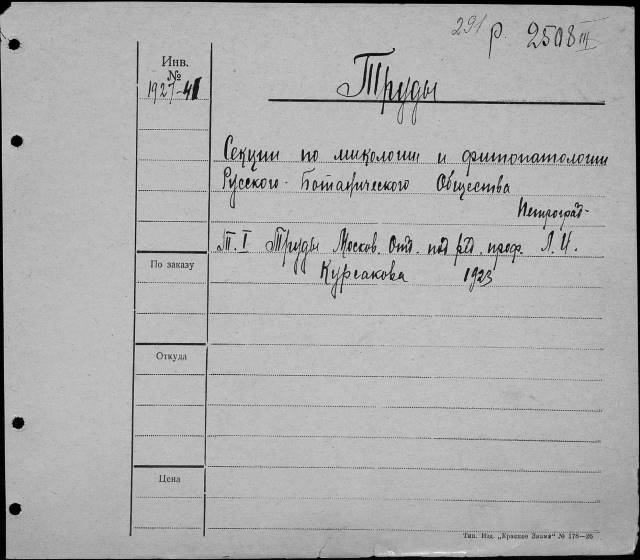 291 р. 2508 III
Инв.
№
1927-41
Труды
Секции по микологии и фитопатологии
Русского Ботанического Общества
Петроград-
Т. I Труды Москов. Отд. под ред. проф. Л. И.
Курсакова 1923
По заказу
Откуда
Цена
Тип. Изд. „Красное Знамя“ № 178—26